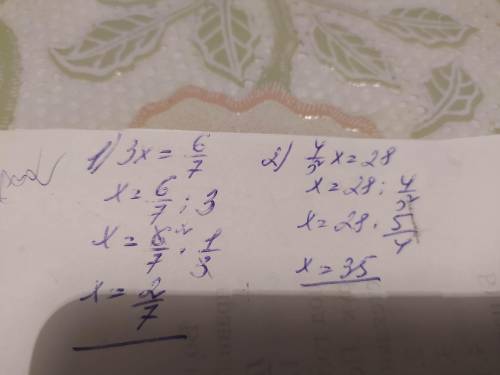 1) 3x = 6/7
x = 6/7 : 3
x = 6/7 · 1/3
x = 2/7
2) 4/5 x = 28
x = 28 : 4/5
x = 28 · 5/4
x = 35